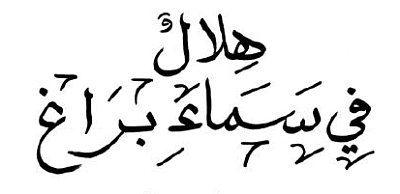 هِلالٌ
في سَمَاءِ بَراغ